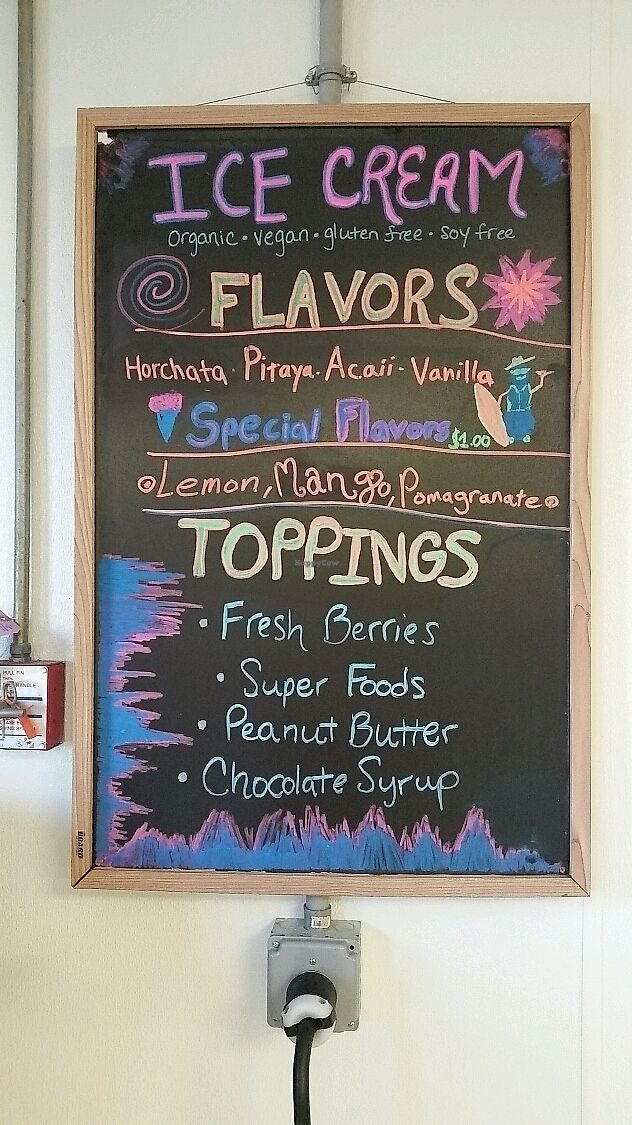 ICE CREAM
Organic • vegan • gluten free • soy free
FLAVORS
Horchata • Pitaya • Acaii • Vanilla
Special Flavors $1.00
Lemon, Mango, Pomagranate
TOPPINGS
HappyCow
• Fresh Berries
• Super Foods
• Peanut Butter
• Chocolate Syrup
BOARD
PULL PIN
HANDLE